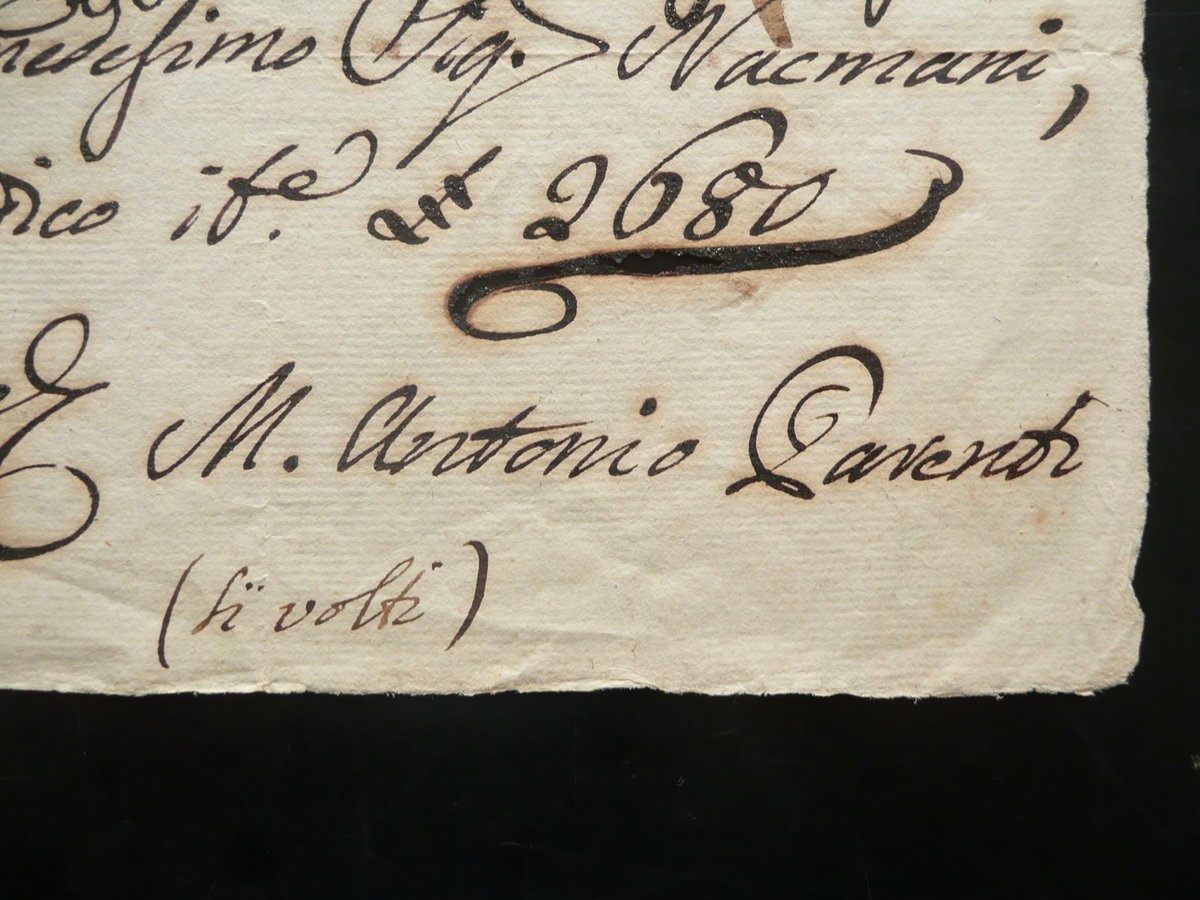 medesimo Sig. Nacmani,
dico it.e 2680
M. Antonio Parenti
(si volti)